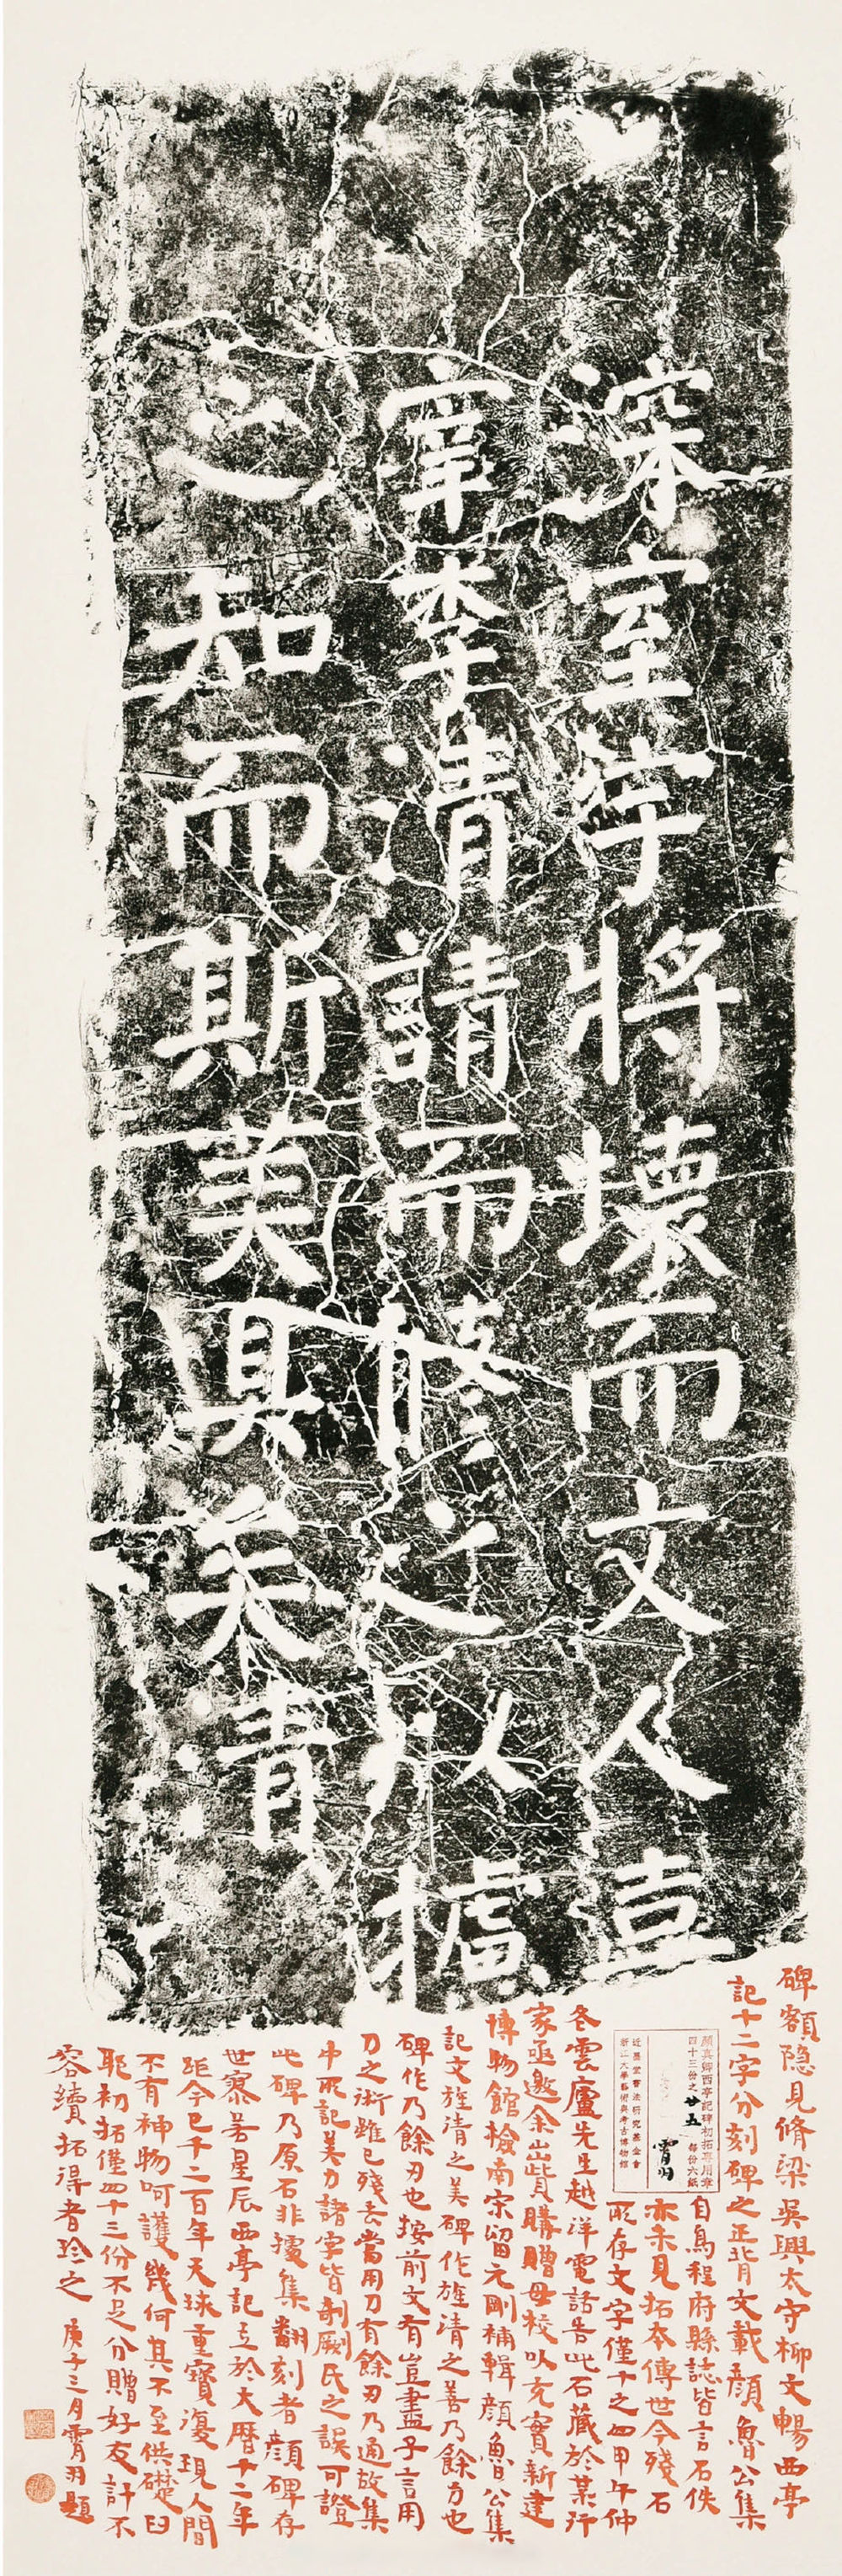 深室宇將壞而文人壴
宰李清請而脩之以據
之知而斯美具矣青
碑額隐見脩梁吳興太守柳文暢西亭
記十二字分刻碑之正背文載顏魯公集
自烏程府縣誌皆言石佚
亦未見拓本傳世今殘石
所存文字僅十之四甲午仲
冬雲廬先生越洋電話告此石藏於某行
家亟邀余出貲購贈母校以充實新建
博物館檢南宋留元剛補輯顏魯公集
記文旌清之美碑作旌清之善乃餘力也
碑作乃餘刃也按前文有豈盡子言用
刀之術雖已殘去當用刀有餘刃乃通故集
中所記美力諸字皆剞劂氏之誤可證
此碑乃原石非據集翻刻者顏碑存
世寥若星辰西亭記立於大曆十二年
距今已千二百年天球重寶復現人間
不有神物呵護幾何其不至供礎臼
耶初拓僅四十三份不足分贈好友計不
容續拓得者珍之 庚子三月霄羽題
顏真卿西亭記碑初拓專用章
四十三份之廿五 每份六紙
霄羽
近墨堂書法研究基金會
浙江大學藝術與考古博物館